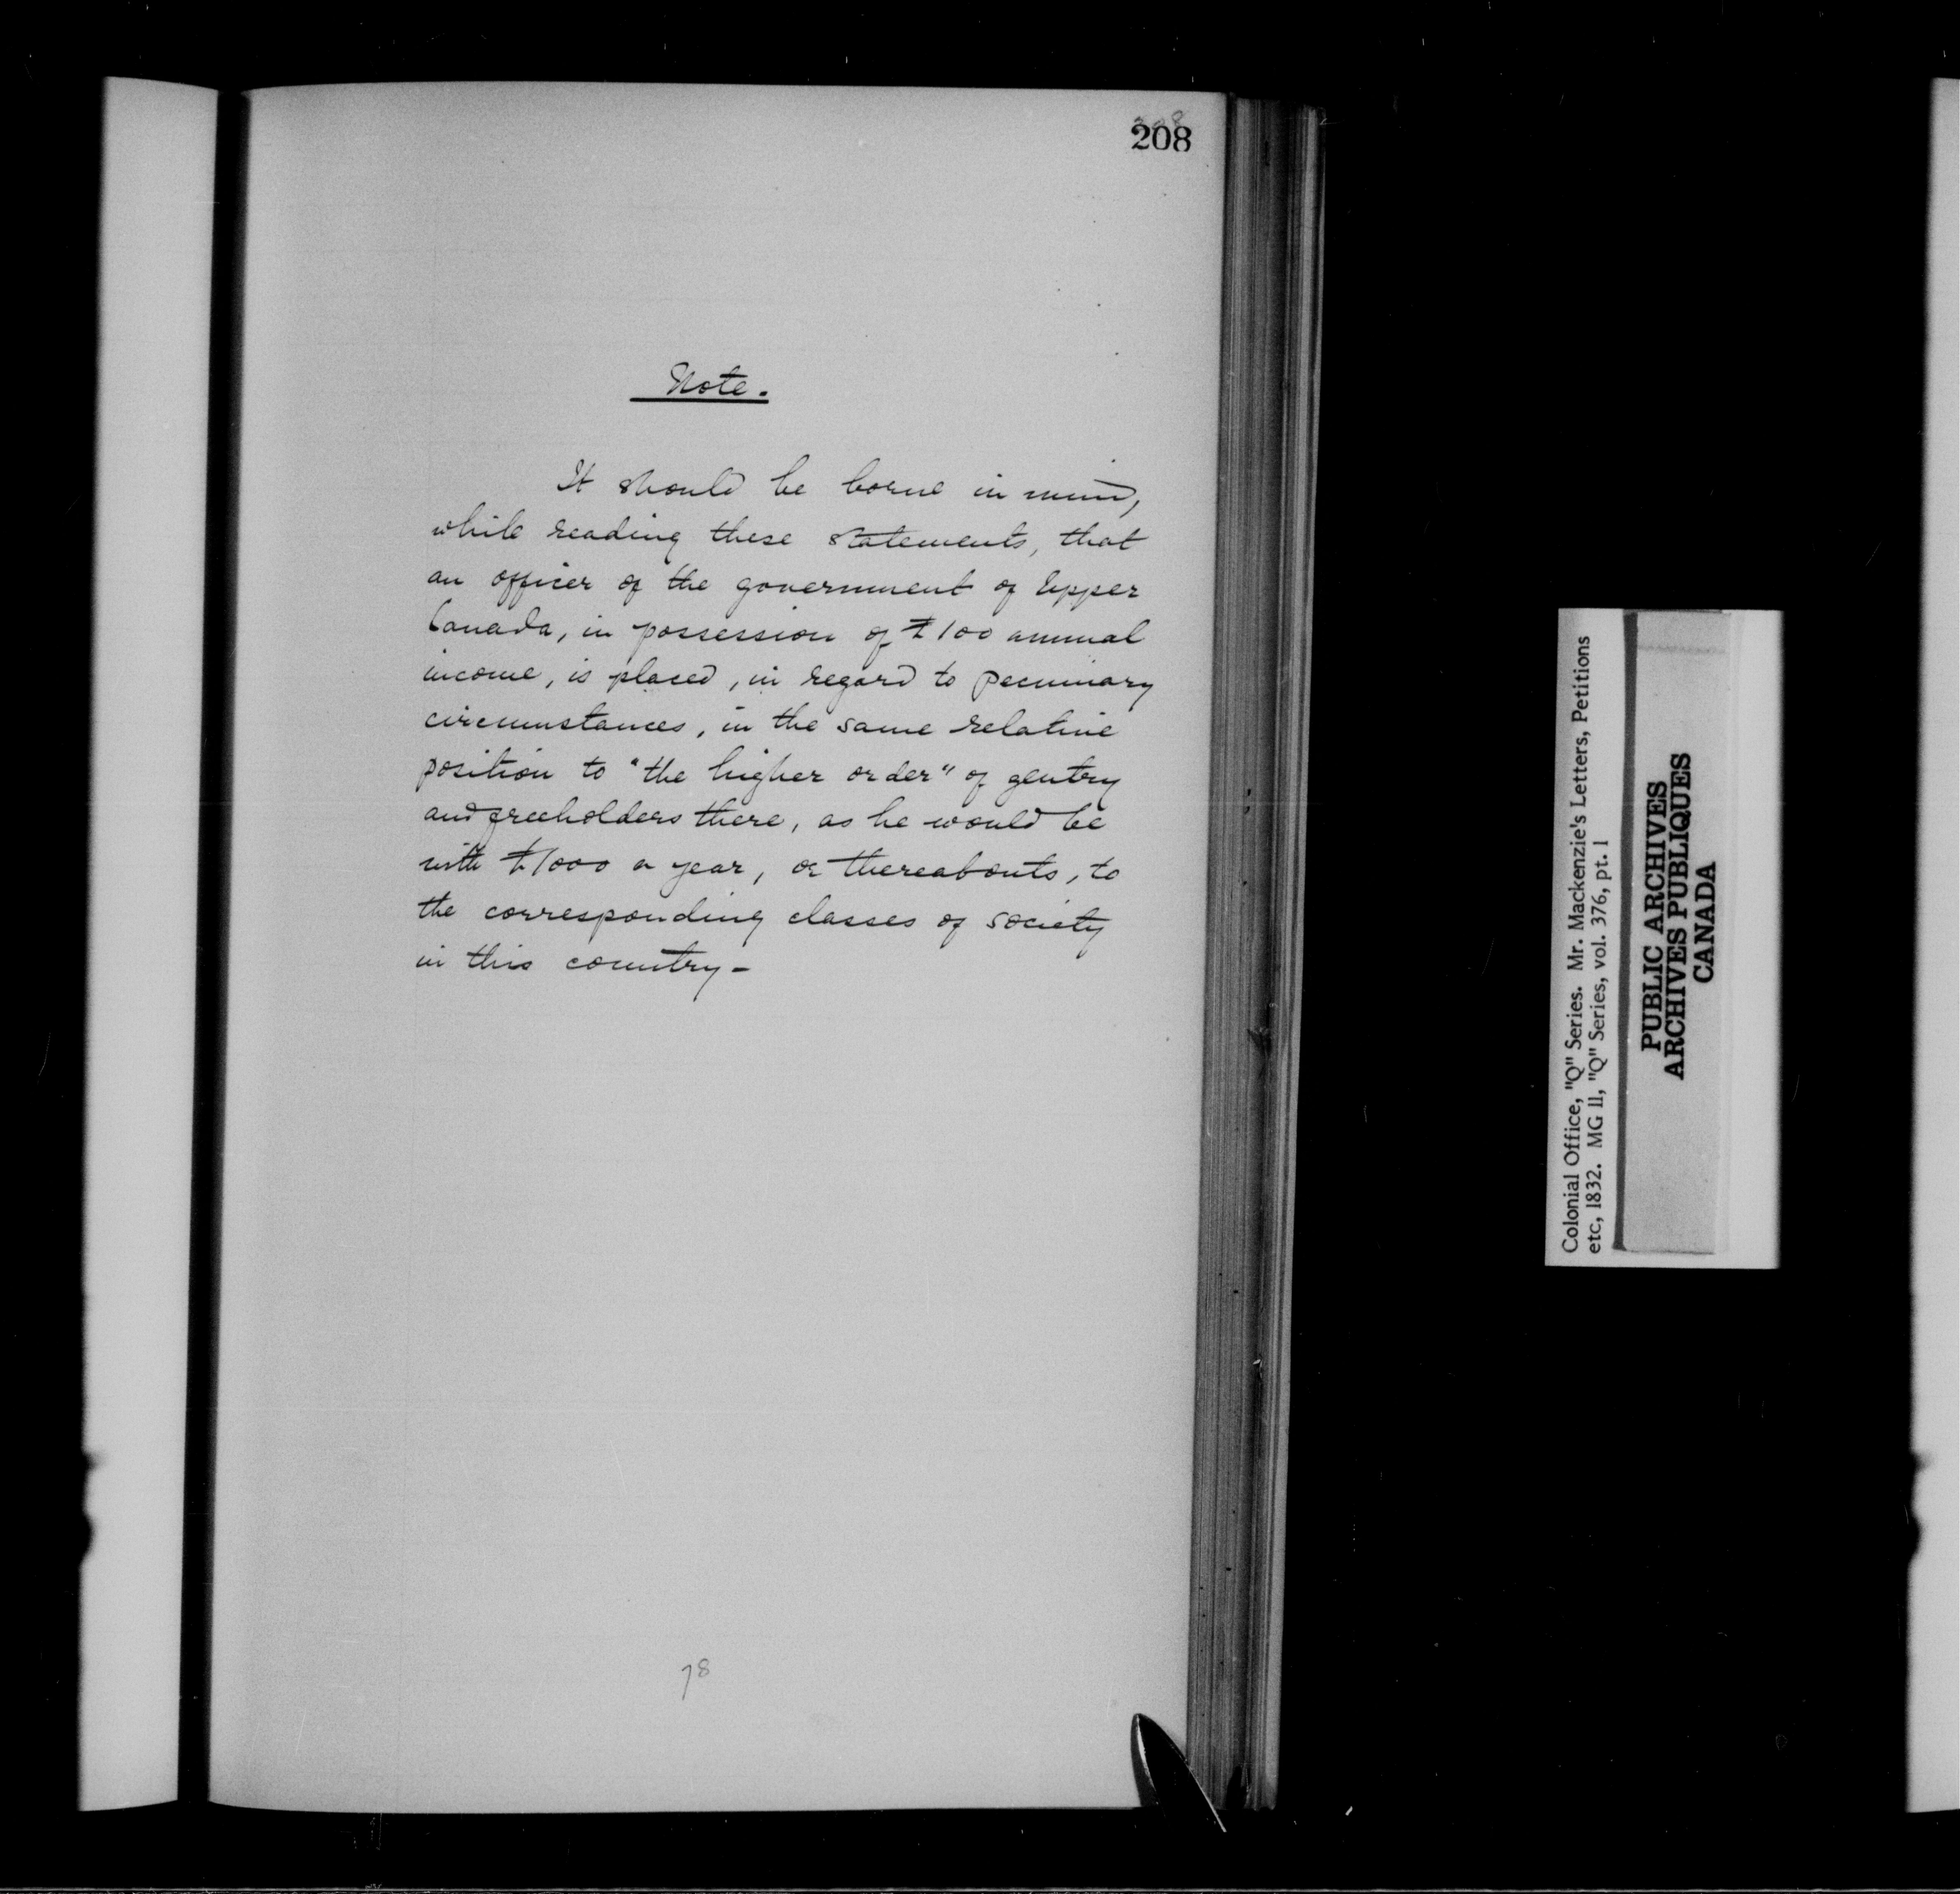 208
208
Note.
It should be borne in mind,
while reading these statements, that
an officer of the government of Upper
Canada, in possession of £100 annual
income, is placed, in regard to pecuniary
circumstances, in the same relative
position to "the higher order" of gentry
and freeholders there, as he would be
with £1000 a year, or thereabouts, to
the corresponding classes of society
in this country -
78
Colonial Office, "Q" Series. Mr. Mackenzie's Letters, Petitions
etc, 1832. MG 11, "Q" Series, vol. 376, pt. 1
PUBLIC ARCHIVES
ARCHIVES PUBLIQUES
CANADA